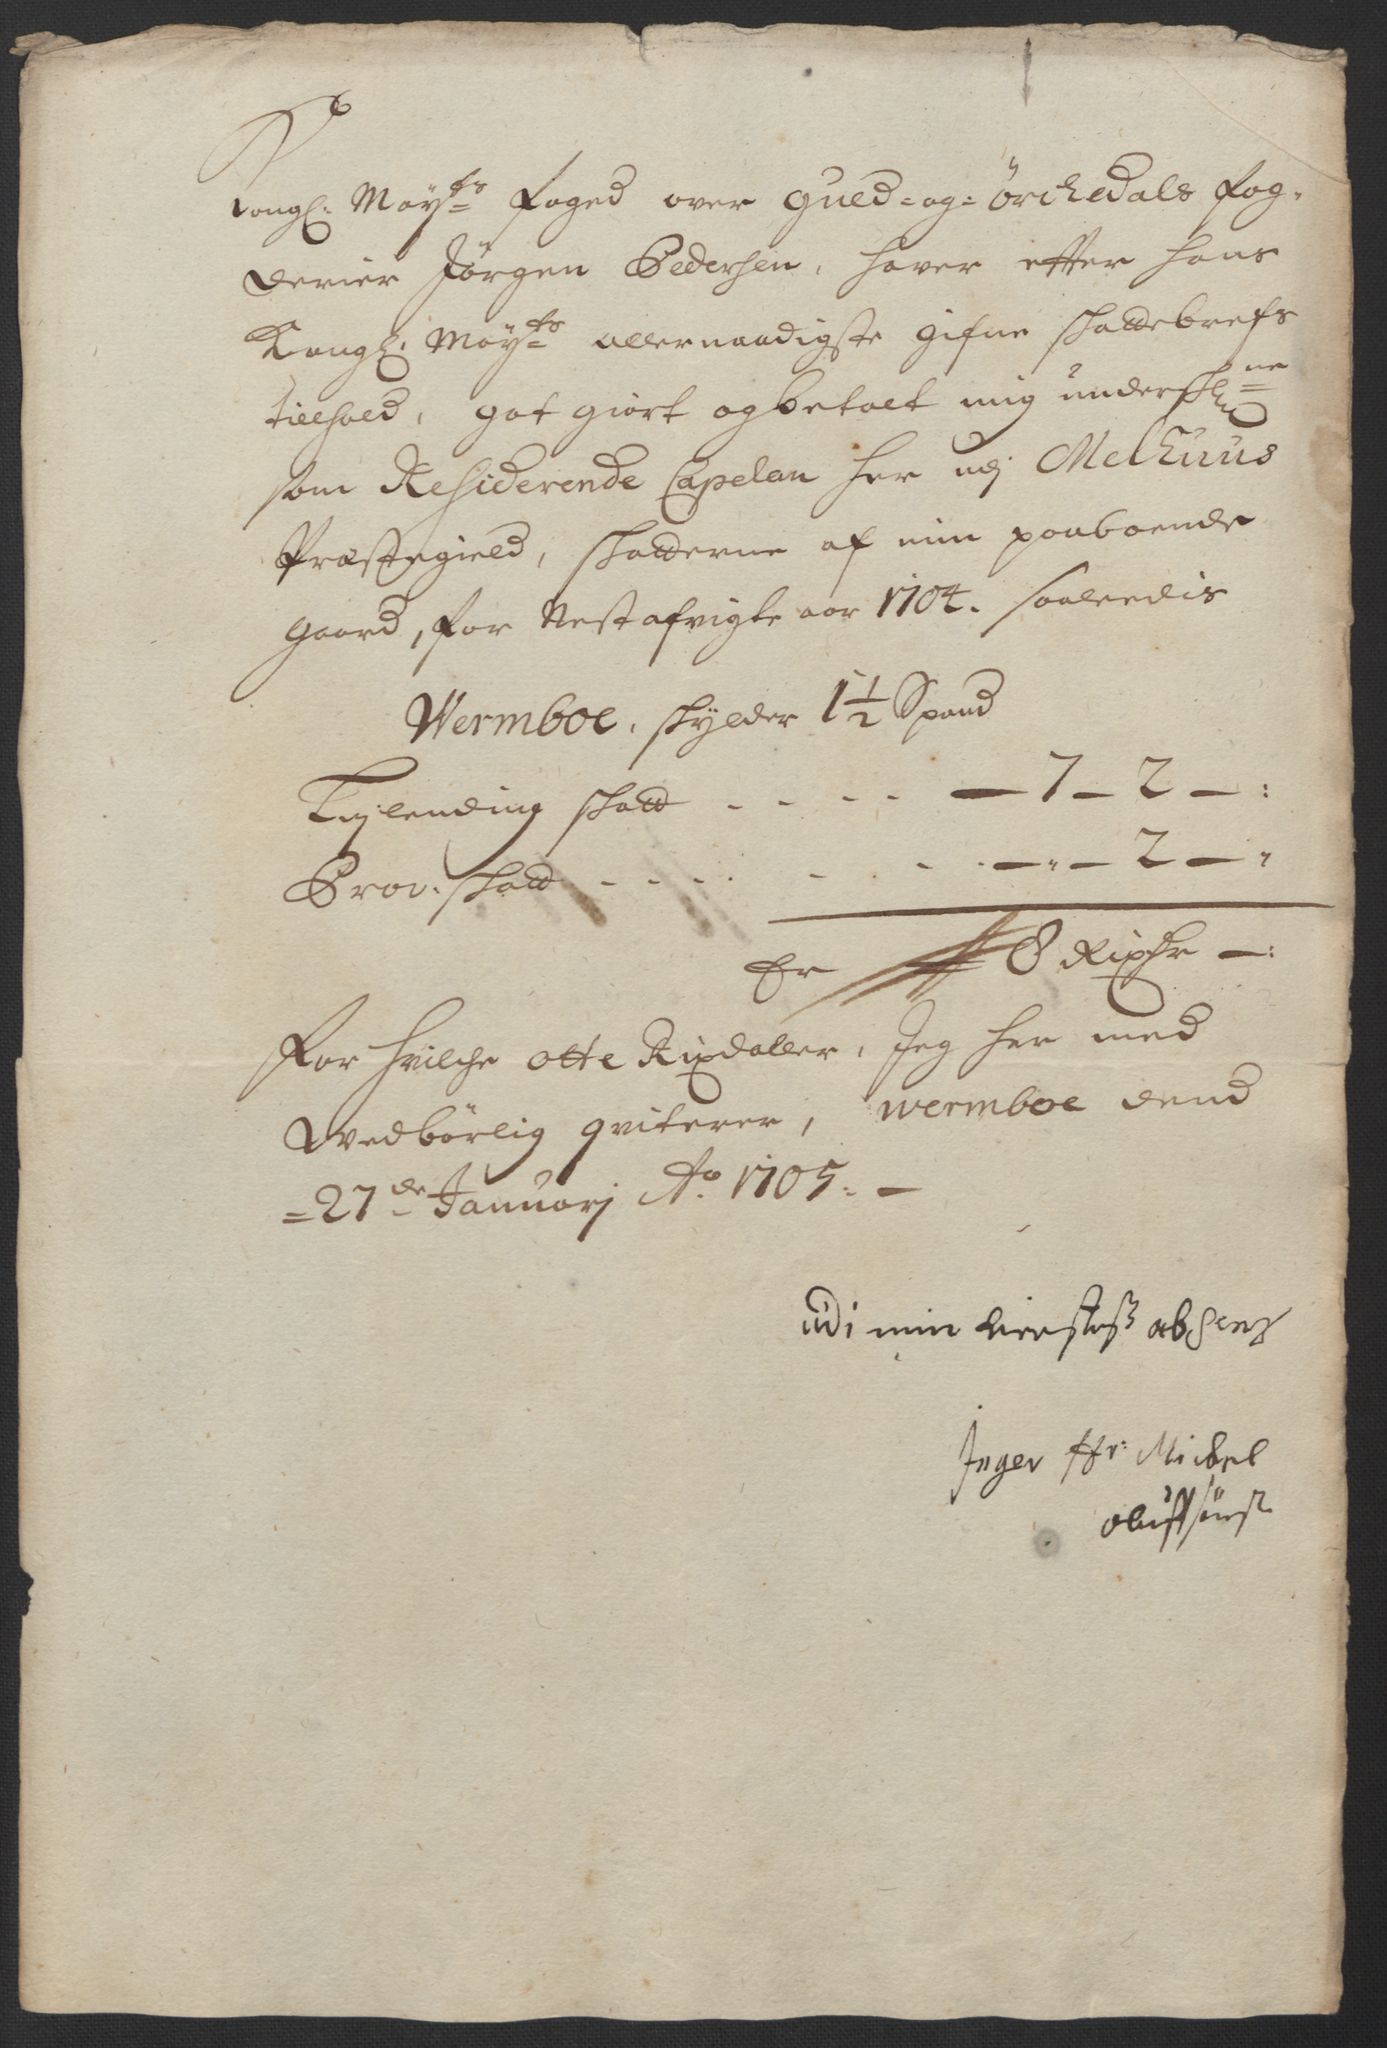 Kongl: May:ts Foged over Guld-og-Örchedals Fog-
derier Jörgen Pedersen, hafver efter hans
Kongl: May:ts allernaadigste gifne skattebrefs
tilhold, got giort og betalt mig underskne
som Residerende Capelan her udj Melhuus
Præstegield, skatterne af min paaboende
gaard, for Nestafvigte aar 1704. saaledis
Wermboe, skylder 1 1/2 Spand
Leylending skatt - - - - — 7 - 2 - :
Prov: skatt - - - - - - - — „ - 2 - „
Er 8 Rixdr — :
For hvilche otte Rixdaller, Jeg her med
Wedbörlig qviterer, Wermboe dend
= 27de Januarj Ao. 1705. —
udi min kierestes absenz
Inger Hr: Mickel
oluffsöns